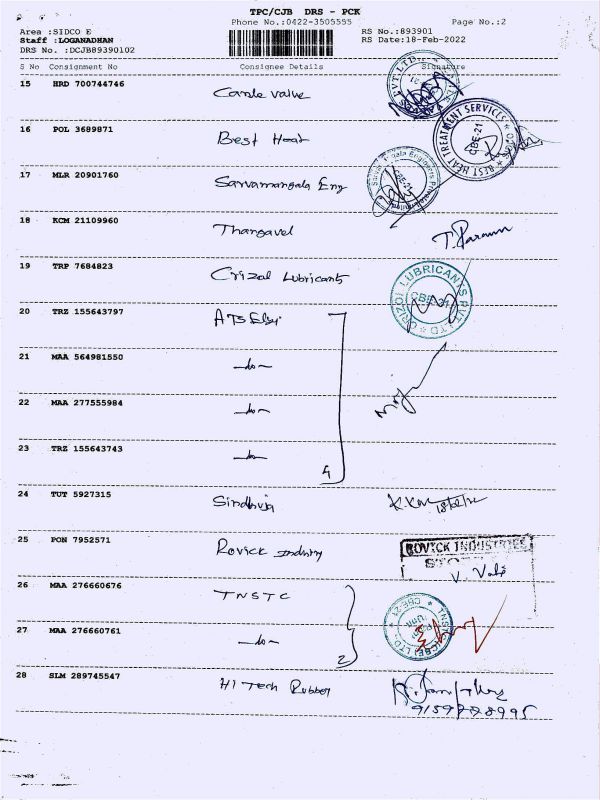 TPC/CJB DRS - PCK
Phone No.:0422-3505555 Page No.:2
Area :SIDCO E RS No.:893901
Staff :LOGANADHAN RS Date:18-Feb-2022
DRS No. :DCJB89390102
S No Consignment No Consignee Details Signature
15 HRD 700744746 valve
16 POL 3689871 Best Heat
BEST HEAT TREATMENT SERVICES CBE-21
17 MLR 20901760 Sarvamangala Eng
18 KCM 21109960 Thangavel
19 TRP 7684823 Crizal Lubricants
LUBRICANTS PVT LTD CBE-21
20 TRZ 155643797
21 MAA 564981550 -do-
22 MAA 277555984 -do-
23 TRZ 155643743 -do-
4
24 TUT 5927315 Sindhuja
25 PON 7952571 Rovick Industry
ROVICK INDUSTRIES
26 MAA 276660676 TNSTC
27 MAA 276660761 -do-
2
28 SLM 289745547 Hi Tech Rubber